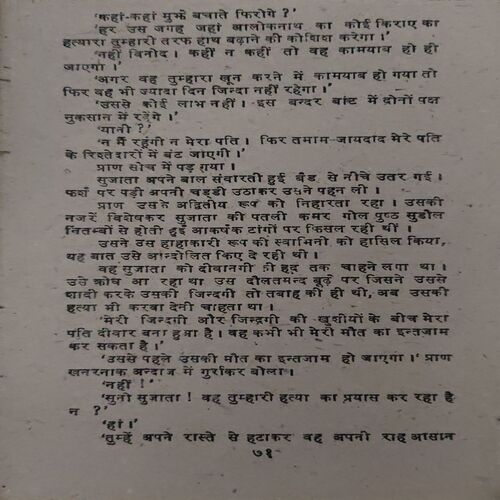 ‘कहां-कहां मुझे बचाते फिरोगे ?’
‘हर उस जगह जहां आलोकनाथ का कोई किराए का
हत्यारा तुम्हारी तरफ हाथ बढ़ाने की कोशिश करेगा ।’
‘नहीं विनोद । कहीं न कहीं तो वह कामयाब हो ही
जाएगा ।’
‘अगर वह तुम्हारा खून करने में कामयाब हो गया तो
फिर वह भी ज्यादा दिन जिन्दा नहीं रहेगा ।’
‘उससे कोई लाभ नहीं । इस बन्दर बांट में दोनों पक्ष
नुकसान में रहेंगे ।’
‘यानी ?’
‘न मैं रहूंगी न मेरा पति । फिर तमाम-जायदाद मेरे पति
के रिश्तेदारों में बंट जाएगी ।’
प्राण सोच में पड़ गया ।
सुजाता अपने बाल संवारती हुई बैड से नीचे उतर गई ।
फर्श पर पड़ी अपनी चड्डी उठाकर उसने पहन ली ।
प्राण उसके अद्वितीय रूप को निहारता रहा । उसकी
नजरें विशेषकर सुजाता की पतली कमर गोल पुष्ठ सुडौल
नितम्बों से होती हुई आकर्षक टांगों पर फिसल रही थीं ।
उसने उस हाहाकारी रूप की स्वामिनी को हासिल किया,
यह बात उसे आन्दोलित किए दे रही थी ।
वह सुजाता को दीवानगी की हद तक चाहने लगा था ।
उसे क्रोध आ रहा था उस दौलतमन्द बूढ़े पर जिसने उससे
शादी करके उसकी जिन्दगी तो तबाह की ही थी, अब उसकी
हत्या भी करवा देनी चाहता था ।
‘मेरी जिन्दगी और जिन्दगी की खुशीयों के बीच मेरा
पति दीवार बना हुआ है । वह कभी भी मेरी मौत का इन्तजाम
कर सकता है ।’
‘उससे पहले उसकी मौत का इन्तजाम हो जाएगा ।’ प्राण
खतरनाक अन्दाज में गुर्राकर बोला ।
‘नहीं !’
‘सुनो सुजाता ! वह तुम्हारी हत्या का प्रयास कर रहा है
न ?’
‘हां ।’
‘तुम्हें अपने रास्ते से हटाकर वह अपनी राह आसान
७१